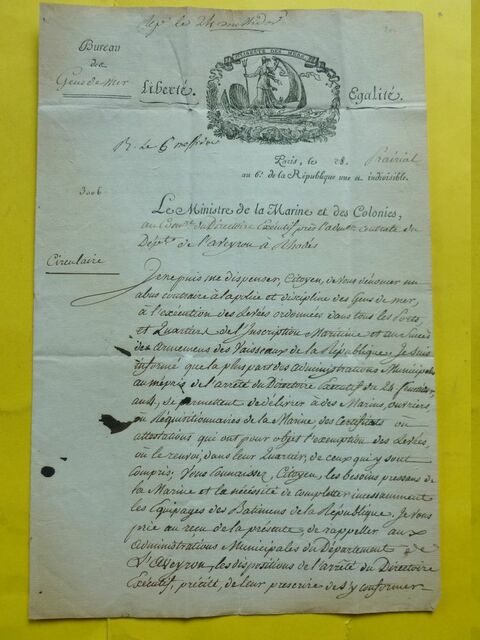 Rep. le 24 messidor
Bureau
des
Gens de Mer
LIBERTÉ DES MERS
Liberté.
Egalité.
R. Le 6 messidor
Paris, le 28. Prairial
an 6e. de la République une et indivisible.
3006
Le Ministre de la Marine et des Colonies,
au Comre. du Directoire Exécutif près l'admon. centrale du
Dépt. de l'aveyron à Rhodés
Circulaire
Je ne puis me dispenser, Citoyen, de vous dénoncer un
abus contraire à la police et discipline des Gens de mer,
à l'exécution des Levées ordonnées dans tous les Ports
et Quartiers de l'Inscription Maritime et au succès
des armemens des Vaisseaux de la République. Je suis
informé que la plus part des administrations Municipales
au mépris de l'arrêté du Directoire Exécutif du 21
an 4, se permettent de délivrer à des Marins, ouvriers,
ou Réquisitionnaires de la Marine, des Certificats ou
attestations qui ont pour objet l'exemption des Levées
où le renvoi, dans leur Quartier, de ceux qui y sont
compris. Vous Connaissez, Citoyen, les besoins pressens de
la Marine et la nécéssité de completter incessamment
les Equipages des Batimens de la République. Je vous
prie au reçu de la présente, de rappeller aux
administrations Municipales du Département de
L'Aveyron, les dispositions de l'arrêté du Directoire
Exécutif, précité, de leur prescrire de s'y conformer